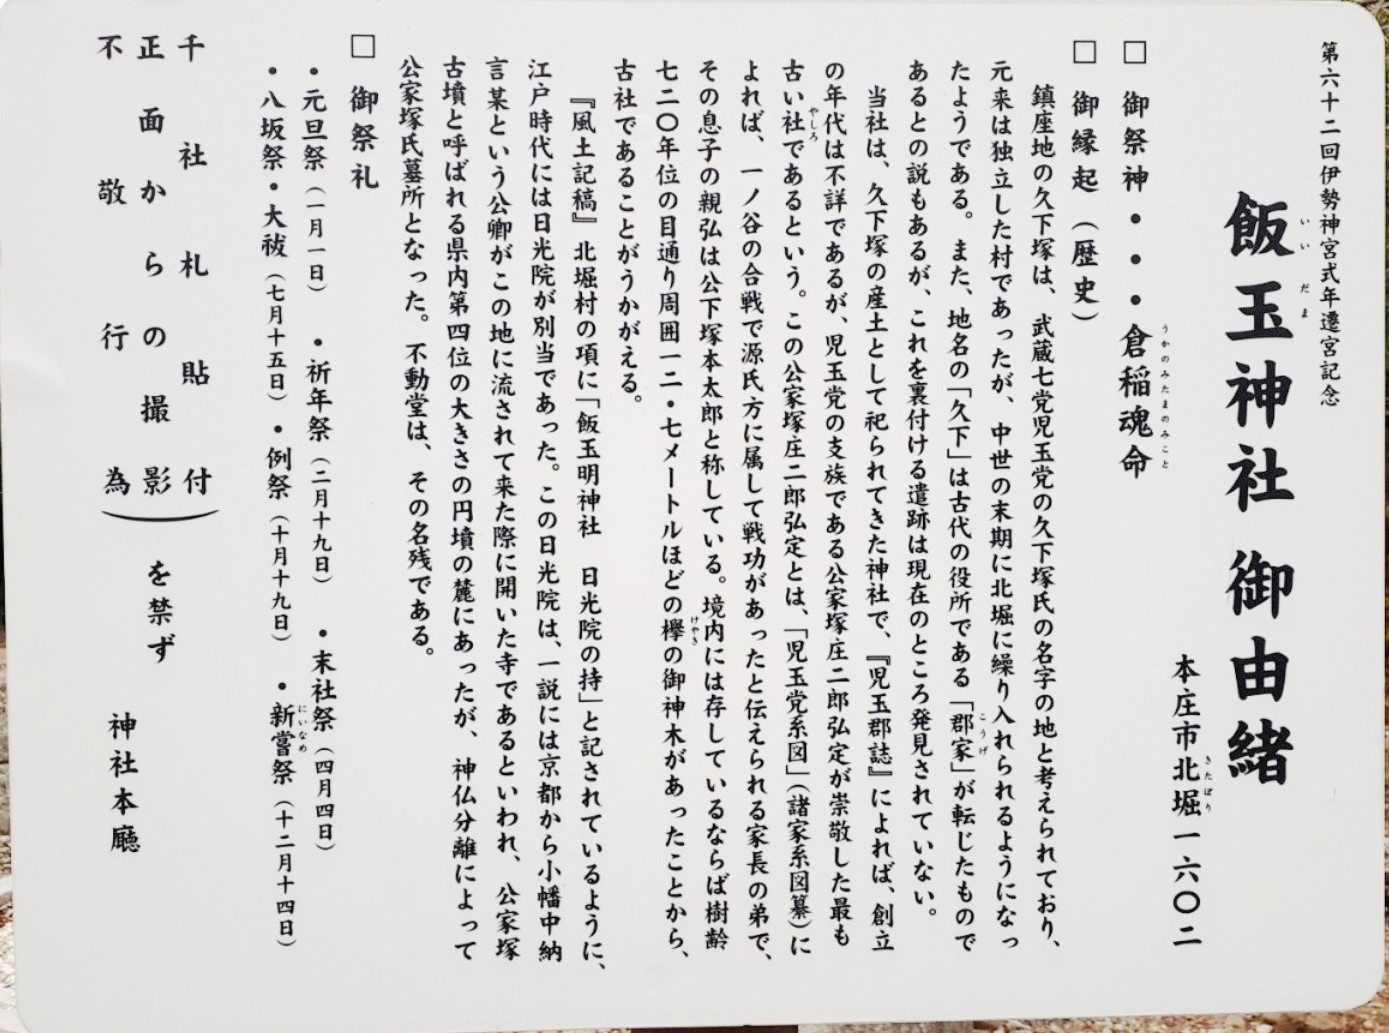 第六十二回伊勢神宮式年遷宮記念
飯玉神社 御由緒
いいだま
本庄市北堀一六〇二
きたぼり
□ 御祭神・・・倉稲魂命
うかのみたまのみこと
□ 御縁起（歴史）
鎮座地の久下塚は、武蔵七党児玉党の久下塚氏の名字の地と考えられており、
元来は独立した村であったが、中世の末期に北堀に繰り入れられるようになっ
たようである。また、地名の「久下」は古代の役所である「郡家」が転じたもので
こうげ
あるとの説もあるが、これを裏付ける遺跡は現在のところ発見されていない。
当社は、久下塚の産土として祀られてきた神社で、『児玉郡誌』によれば、創立
の年代は不詳であるが、児玉党の支族である公家塚庄二郎弘定が崇敬した最も
古い社であるという。この公家塚庄二郎弘定とは、「児玉党系図」（諸家系図纂）に
やしろ
よれば、一ノ谷の合戦で源氏方に属して戦功があったと伝えられる家長の弟で、
その息子の親弘は公下塚本太郎と称している。境内には存しているならば樹齢
七二〇年位の目通り周囲一二・七メートルほどの欅の御神木があったことから、
けやき
古社であることがうかがえる。
『風土記稿』北堀村の項に「飯玉明神社 日光院の持」と記されているように、
江戸時代には日光院が別当であった。この日光院は、一説には京都から小幡中納
言某という公卿がこの地に流されて来た際に開いた寺であるといわれ、公家塚
古墳と呼ばれる県内第四位の大きさの円墳の麓にあったが、神仏分離によって
公家塚氏墓所となった。不動堂は、その名残である。
□ 御祭礼
・元旦祭（一月一日） ・祈年祭（二月十九日） ・末社祭（四月四日）
・八坂祭・大祓（七月十五日） ・例祭（十月十九日） ・新嘗祭（十二月十四日）
にいなめ
千社札貼付
正面からの撮影
不敬行為
を禁ず
神社本廳